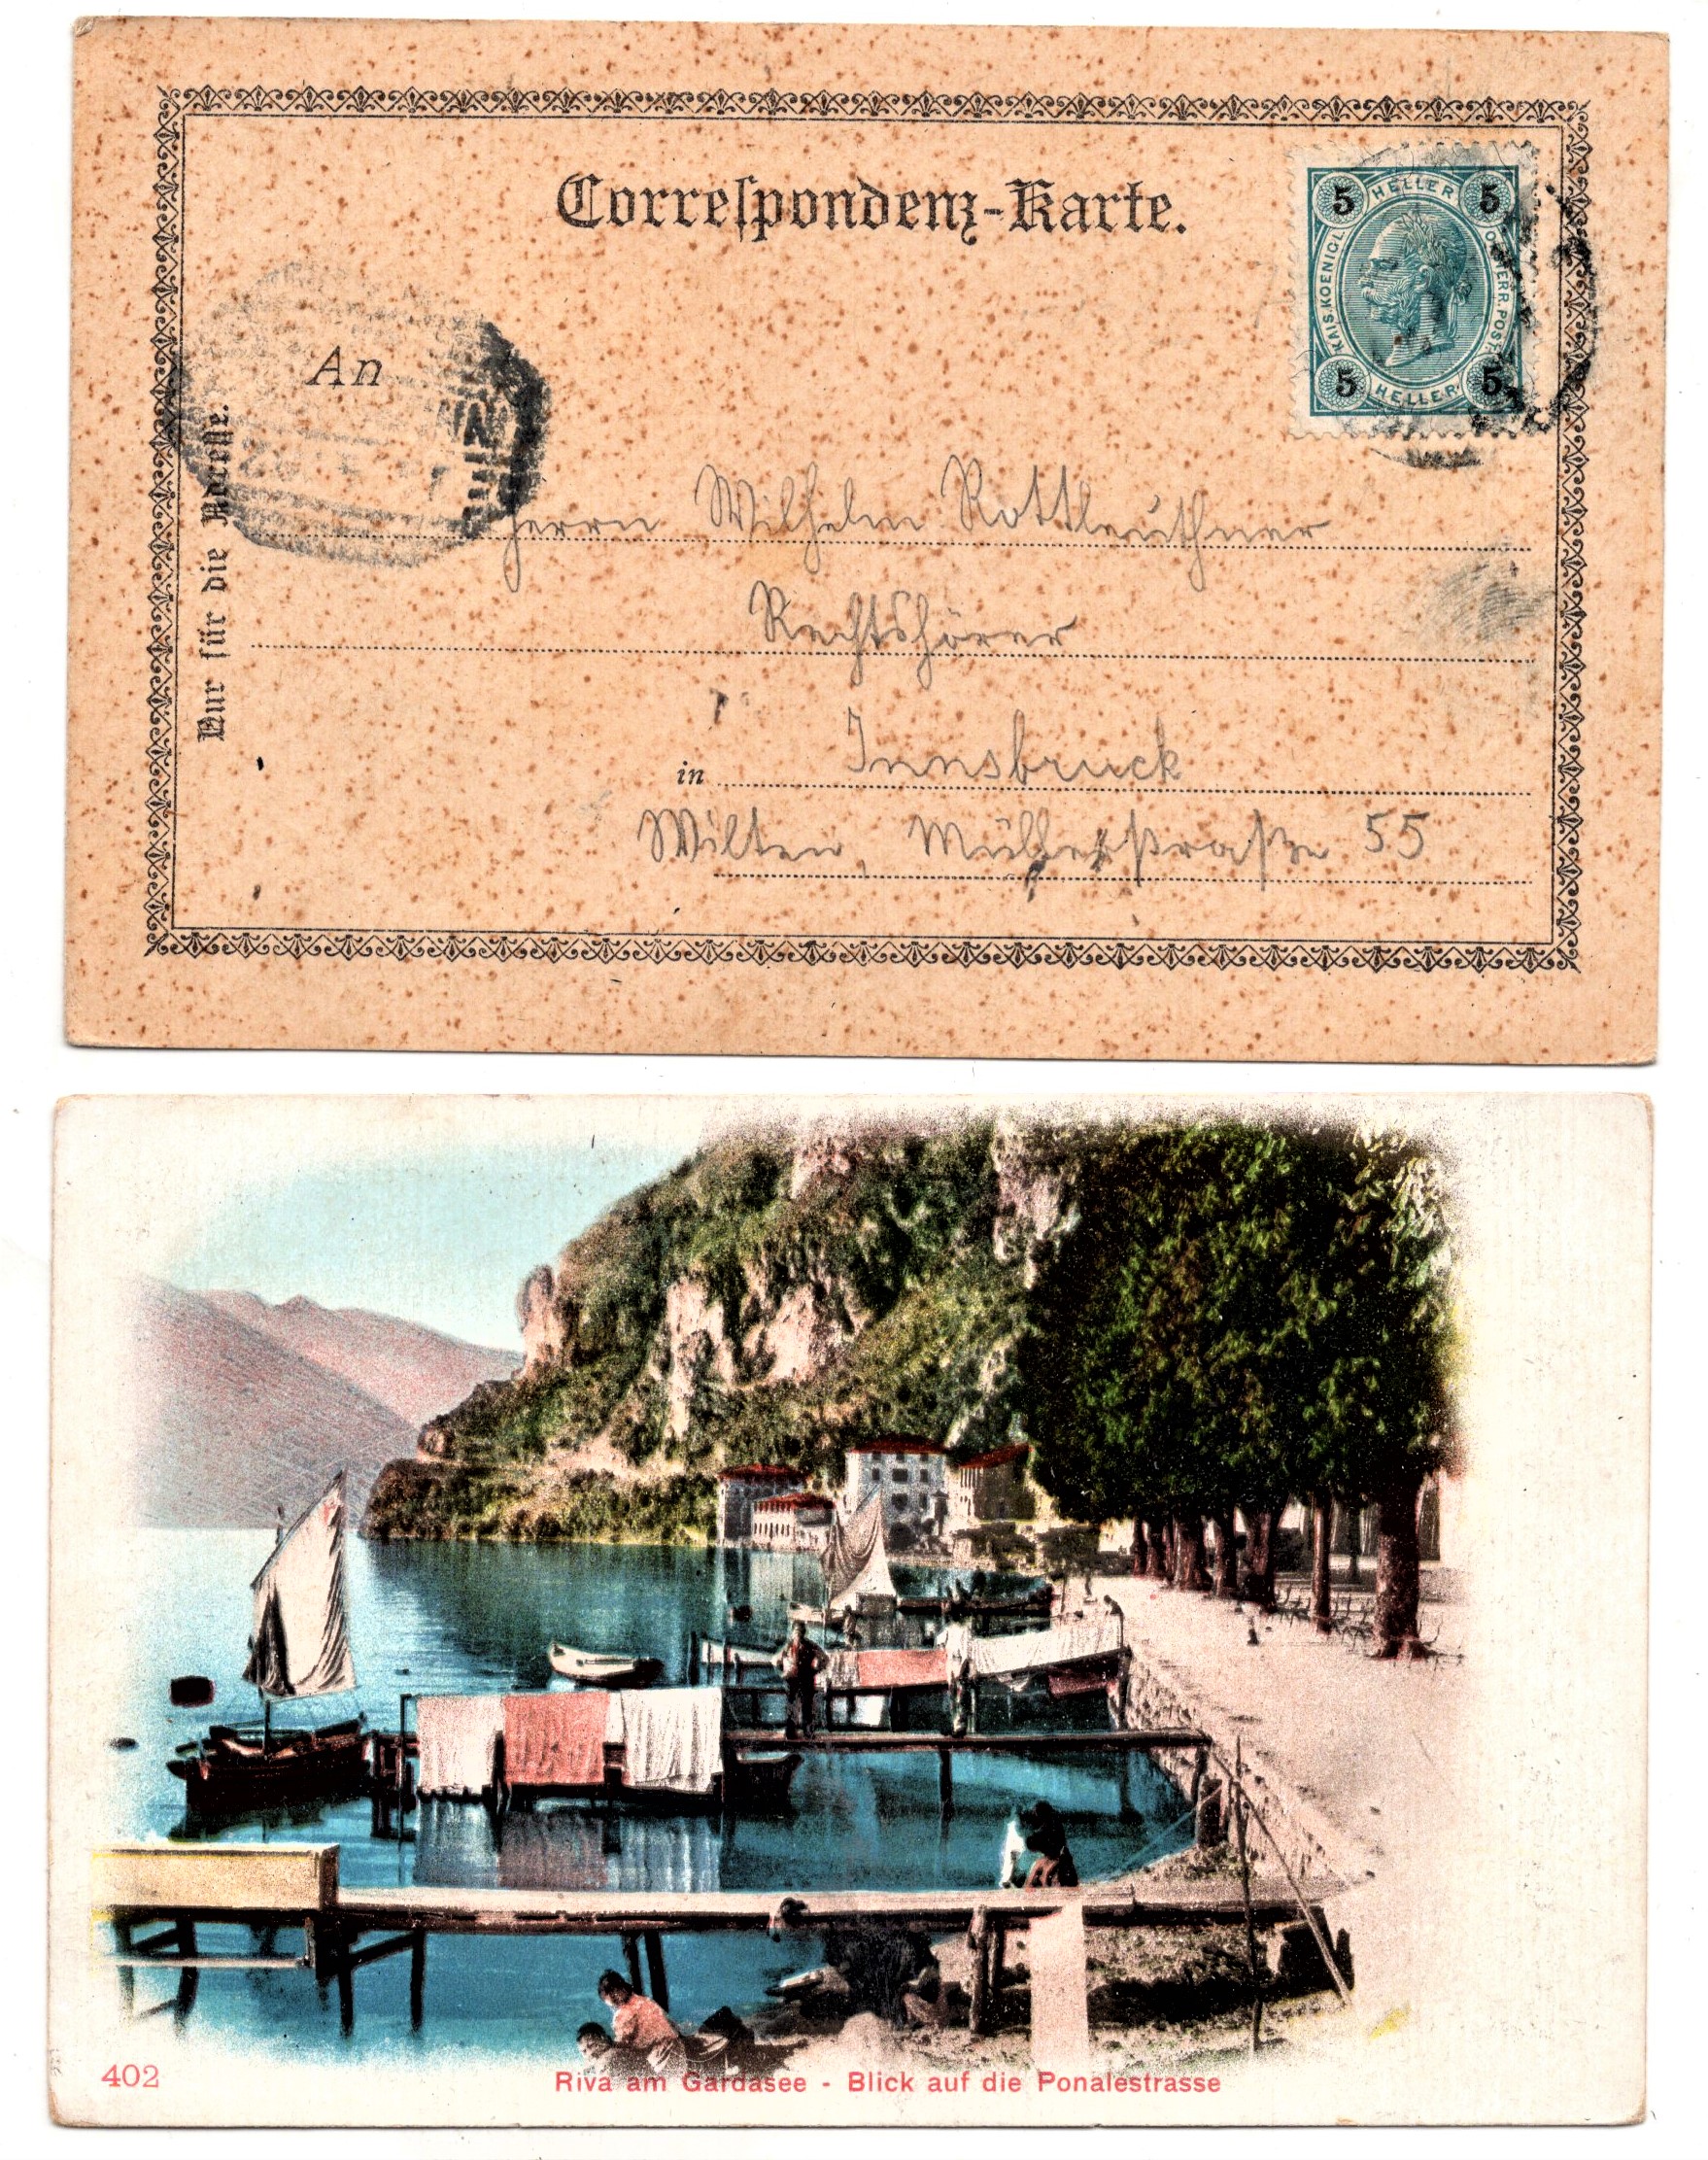 Correſpondenz-Karte.
5 HELLER 5
KAIS. KOENIGL. OESTERR. POST.
5 HELLER 5
An
Nur für die Adreſſe.
Herrn Wilhelm Rottleuthner
Rechtshörer
in Innsbruck
Wilten, Müllerstraße 55
402
Riva am Gardasee - Blick auf die Ponalestrasse